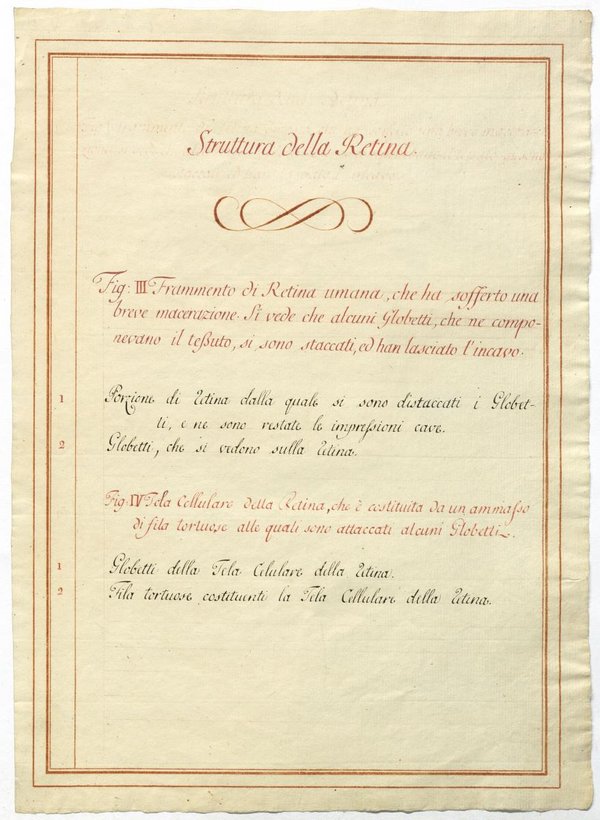 Struttura della Retina.
Fig: III Frammento di Retina umana, che ha sofferto una
breve macerazione. Si vede che alcuni Globetti, che ne compo-
nevano il teſsuto, si sono staccati, ed han lasciato l'incavo.
1 Porzione di Retina dalla quale si sono distaccati i Globet-
ti, e ne sono restate le impreſsioni cave.
2 Globetti, che si vedono sulla Retina.
Fig: IV Tela Cellulare della Retina, che è costituita da un ammaſso
di fila tortuose alle quali sono attaccati alcuni Globetti.
1 Globetti della Tela Celulare della Retina.
2 Fila tortuose costituenti la Tela Cellulare della Retina.